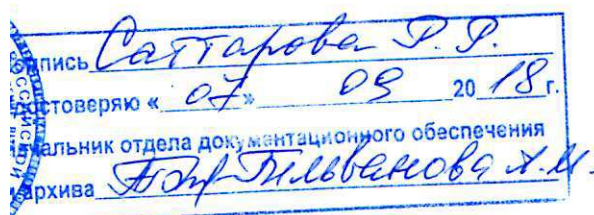 подпись Саттарова Р. Р.
удостоверяю « 07 » 09 20 18 г.
начальник отдела документационного обеспечения
архива Гильванова А.М.